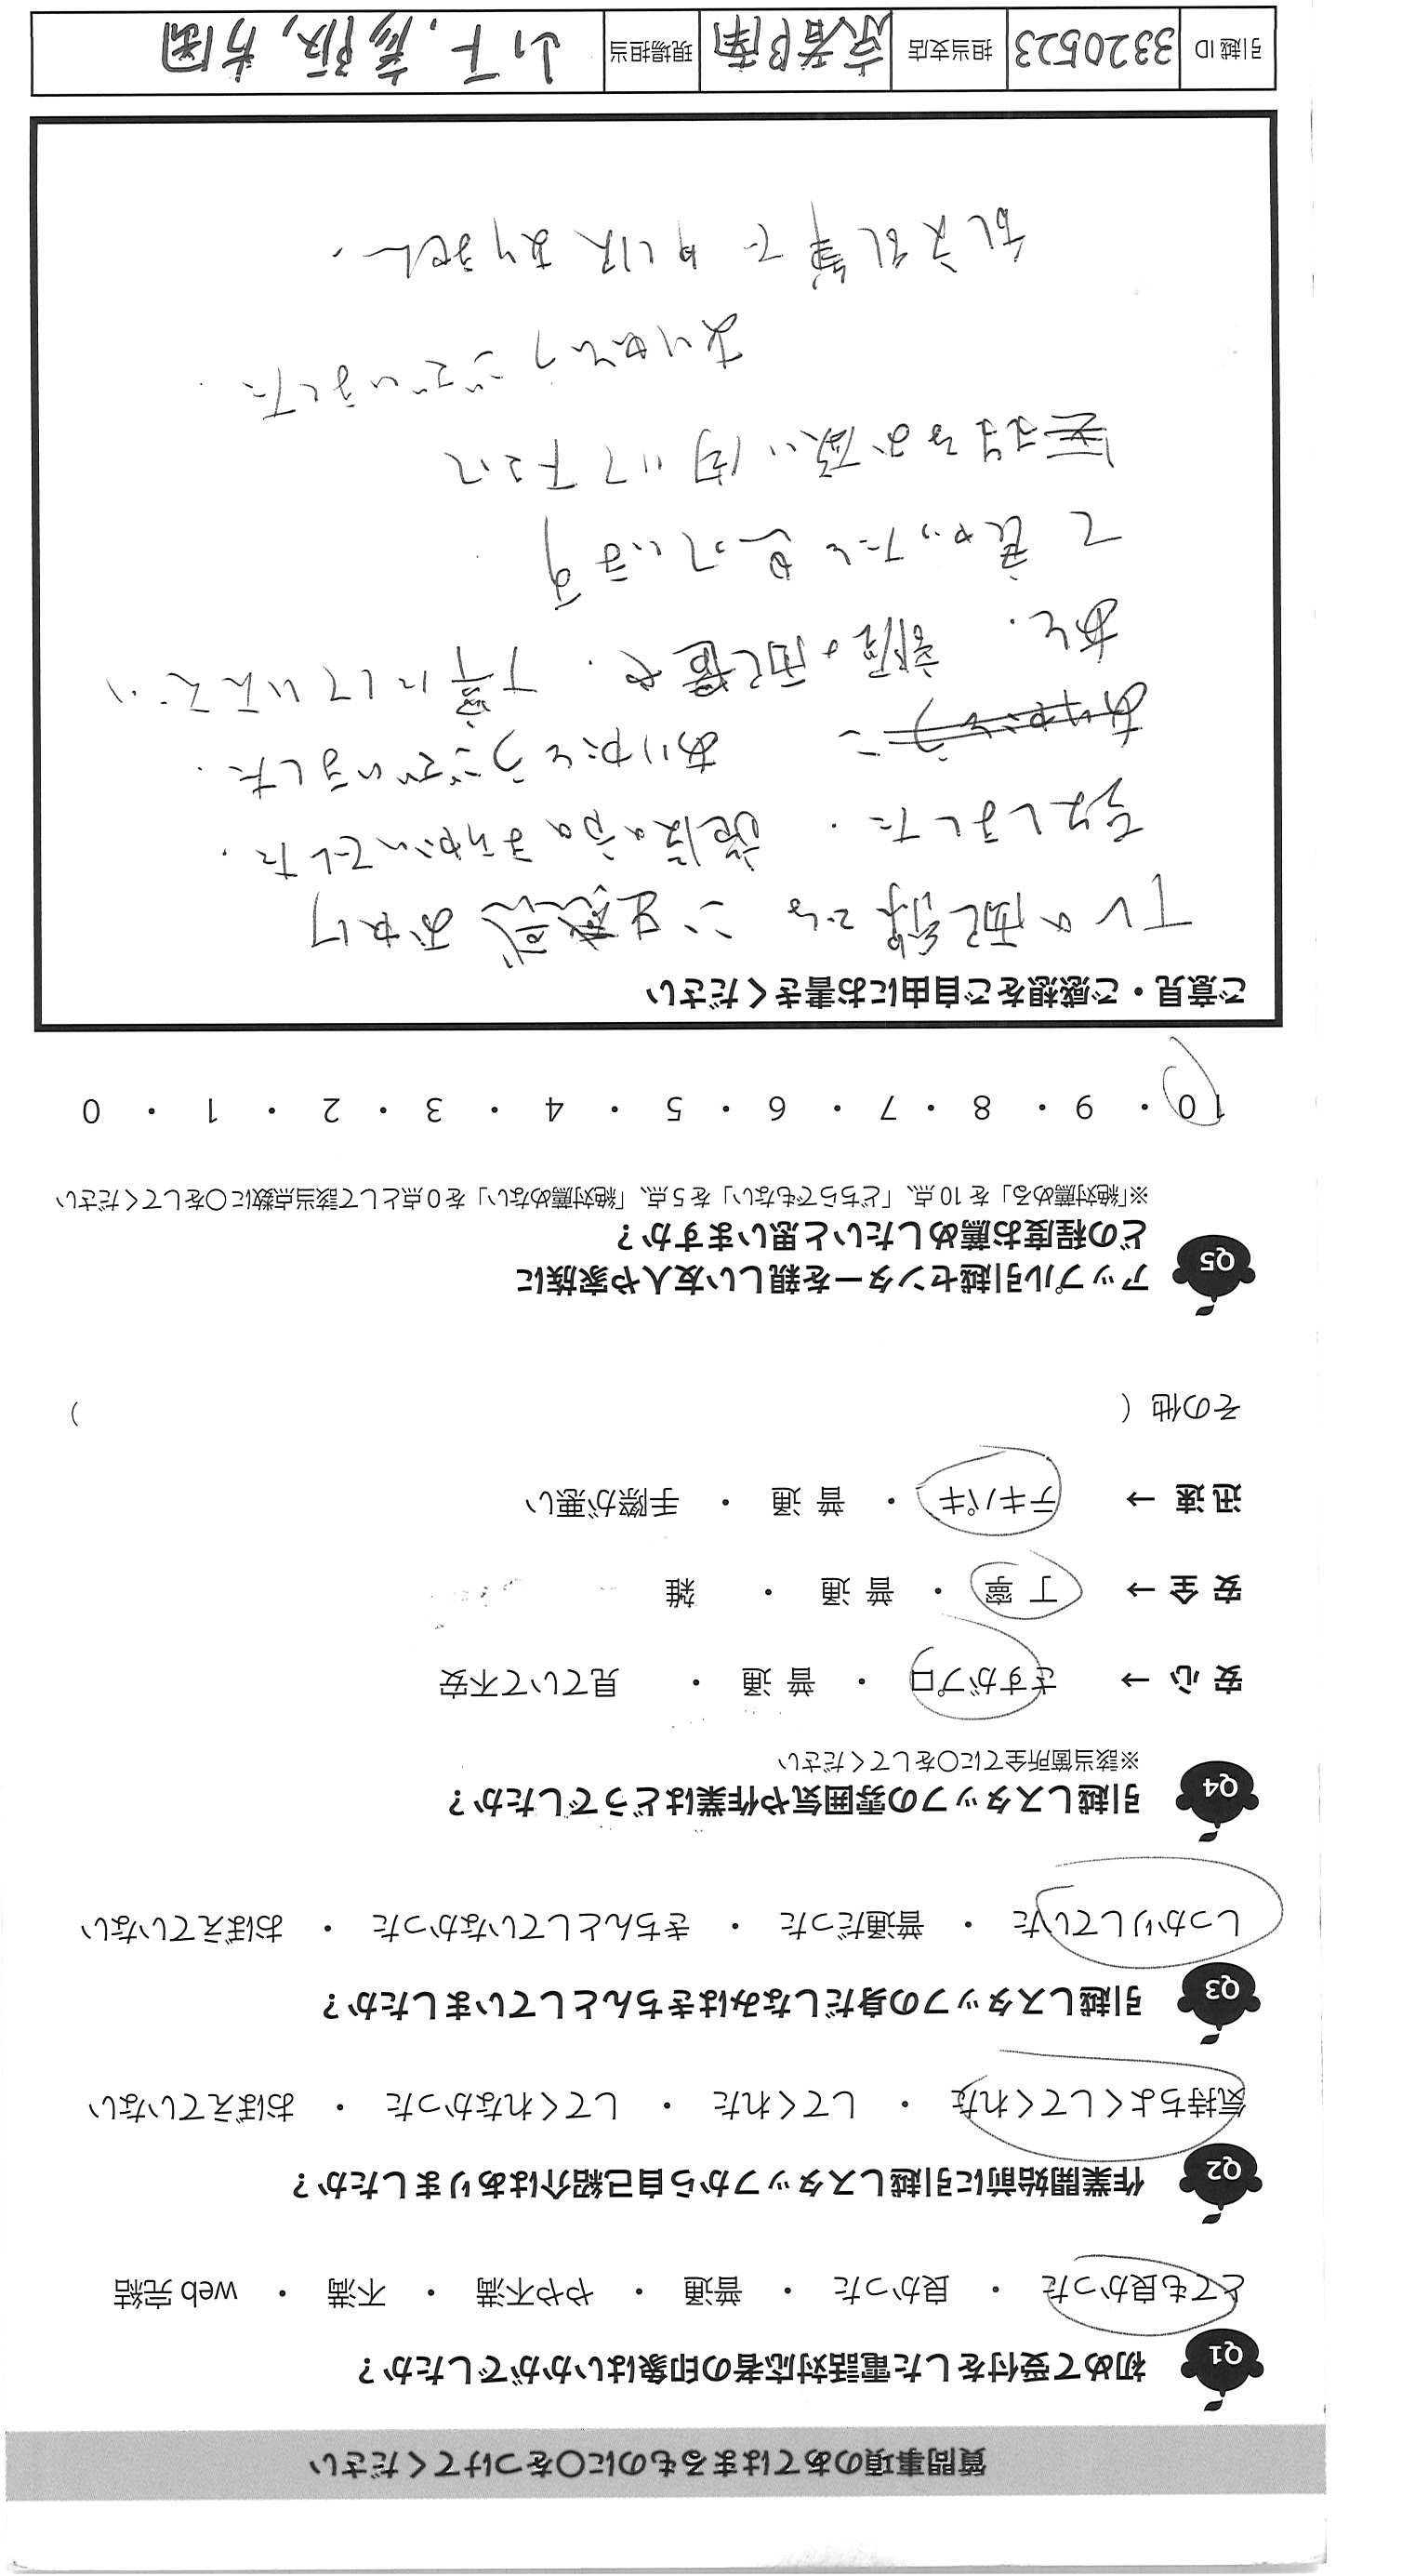 質問事項のあてはまるものに〇をつけてください
Q1 初めて受付をした電話対応者の印象はいかがでしたか？
とても良かった ・ 良かった ・ 普通 ・ やや不満 ・ 不満 ・ web 完結
Q2 作業開始前に引越しスタッフから自己紹介はありましたか？
気持ちよくしてくれた ・ してくれた ・ してくれなかった ・ おぼえていない
Q3 引越しスタッフの身だしなみはきちんとしていましたか？
しっかりしていた ・ 普通だった ・ きちんとしていなかった ・ おぼえていない
Q4 引越しスタッフの雰囲気や作業はどうでしたか？
※該当箇所全てに〇をしてください
安 心 → さすがプロ ・ 普 通 ・ 見ていて不安
安 全 → 丁 寧 ・ 普 通 ・ 雑
迅 速 → テキパキ ・ 普 通 ・ 手際が悪い
その他（ ）
Q5 アップル引越センターを親しい友人や家族に
どの程度お薦めしたいと思いますか？
※「絶対薦める」を 10 点、「どちらでもない」を 5 点、「絶対薦めない」を 0 点として該当点数に〇をしてください
10 ・ 9 ・ 8 ・ 7 ・ 6 ・ 5 ・ 4 ・ 3 ・ 2 ・ 1 ・ 0
ご意見・ご感想をご自由にお書きください
TVの配線では ご迷惑 おかけ
しました. 説の まちがいでした.
ありがとうございました.
あと. 配置や. 丁寧にしていただい
て 良かったと思っています
お願い 下さって
ありがとうございました.
乱文乱筆で 申し訳ありません.
引越 ID 3320523 担当支店 京都南 現場担当 山下,